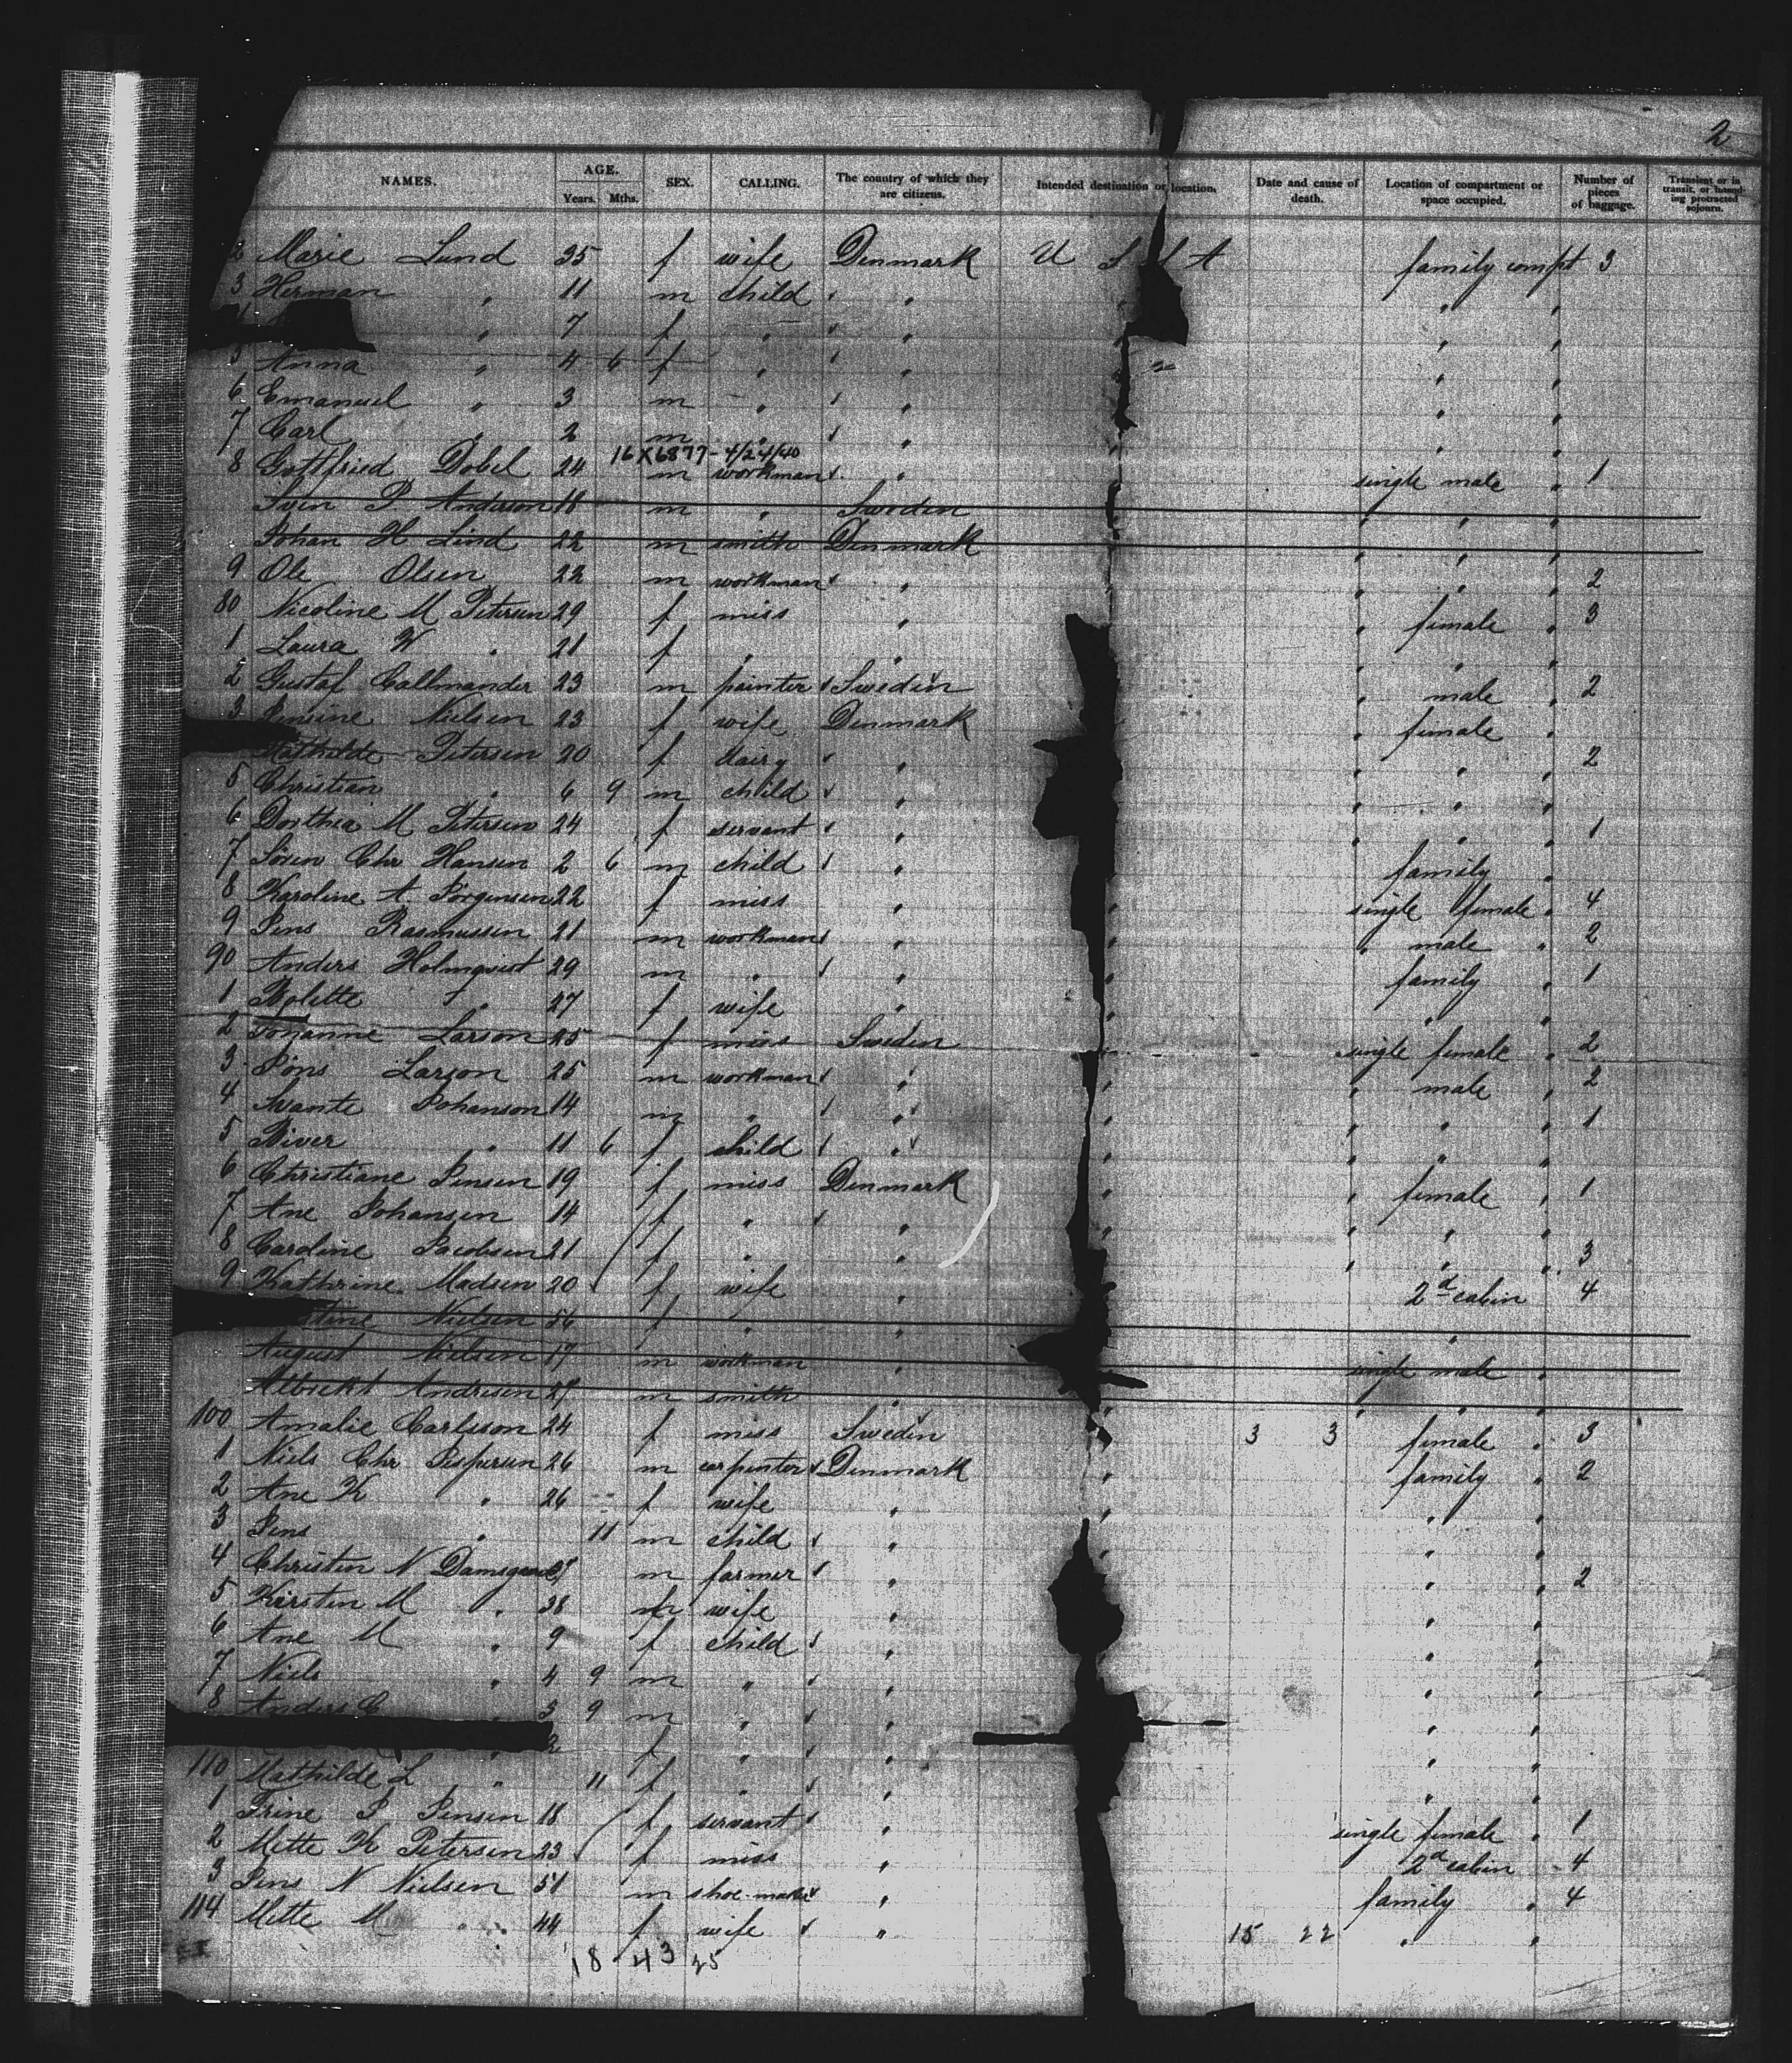 2
NAMES. AGE. Years. Mths. SEX. CALLING. The country of which they are citizens. Intended destination or location. Date and cause of death. Location of compartment or space occupied. Number of pieces of baggage. Transient or in transit, or intending protracted sojourn.
2 Marie Lund 35 f wife Denmark U S A family compt 3
3 Herman " 11 m child " " " "
" 7 f " " " " "
5 Anna " 4 6 f " " " " "
6 Emanuel " 3 m " " " " "
7 Carl " 2 m " " " " "
16X6877-4/24/40
8 Gottfried Dobel 24 m workman " " single male " 1
Sven P. Anderson 18 m " Sweden " " "
Johan H Lind 22 m smith Denmark " " "
9 Ole Olsen 22 m workman " " " " " 2
80 Nicoline M Petersen 29 f miss " " female " 3
1 Laura K " 21 f " " " " "
2 Gustaf Callmander 23 m painter Sweden " " male " 2
3 Jensine Nielsen 23 f wife Denmark " " female "
Mathilde Petersen 20 f dairy " " " " 2
5 Christian " 6 9 m child " " " " "
6 Dorthea M Petersen 24 f servant " " " " " 1
7 Sören Chr Hansen 2 6 m child " " family "
8 Karoline A. Jörgensen 22 f miss " " single female " 4
9 Jens Rasmussen 21 m workman " " " male " 2
90 Anders Holmqvist 29 m " " " family " 1
1 Bolette " 27 f wife " " " "
2 Johanne Larson 25 f miss Sweden " single female " 2
3 Jöns Larson 25 m workman " " " male " 2
4 Svante Johanson 14 m " " " " " " 1
5 " 11 6 f child " " " " "
6 Christiane Jensen 19 f miss Denmark " " female " 1
7 Ane Johansen 14 f " " " " " "
8 Caroline Jacobsen 21 f " " " " " " 3
9 Kathrine Madsen 20 f wife " " 2d cabin 4
Nielsen 56 f " " "
August Nielsen 17 m workman " single male "
Albrekt Andresen 27 m smith " " " " "
100 Amalie Carlsson 24 f miss Sweden 3 3 female " 3
1 Niels Chr Jespersen 26 m carpenter Denmark " family " 2
2 Ane K " 26 f wife " " " "
3 Jens " 11 m child " " " "
4 Christen N Damsgaard m farmer " " " 2
5 Kirsten M " 38 f wife " " "
6 Ane M " 9 f child " " "
7 Niels " 4 9 m " " " "
8 Anders C " 3 9 m " " " "
2 f " " " "
110 Mathilde L " 11 f " " " "
1 Trine P Jensen 18 f servant " single female " 1
2 Mette K Petersen 23 f miss " 2d cabin " 4
3 Jens N Nielsen 51 m shoe-maker " family " 4
114 Mette M " 44 f wife " 15 22 " "
18 43 25